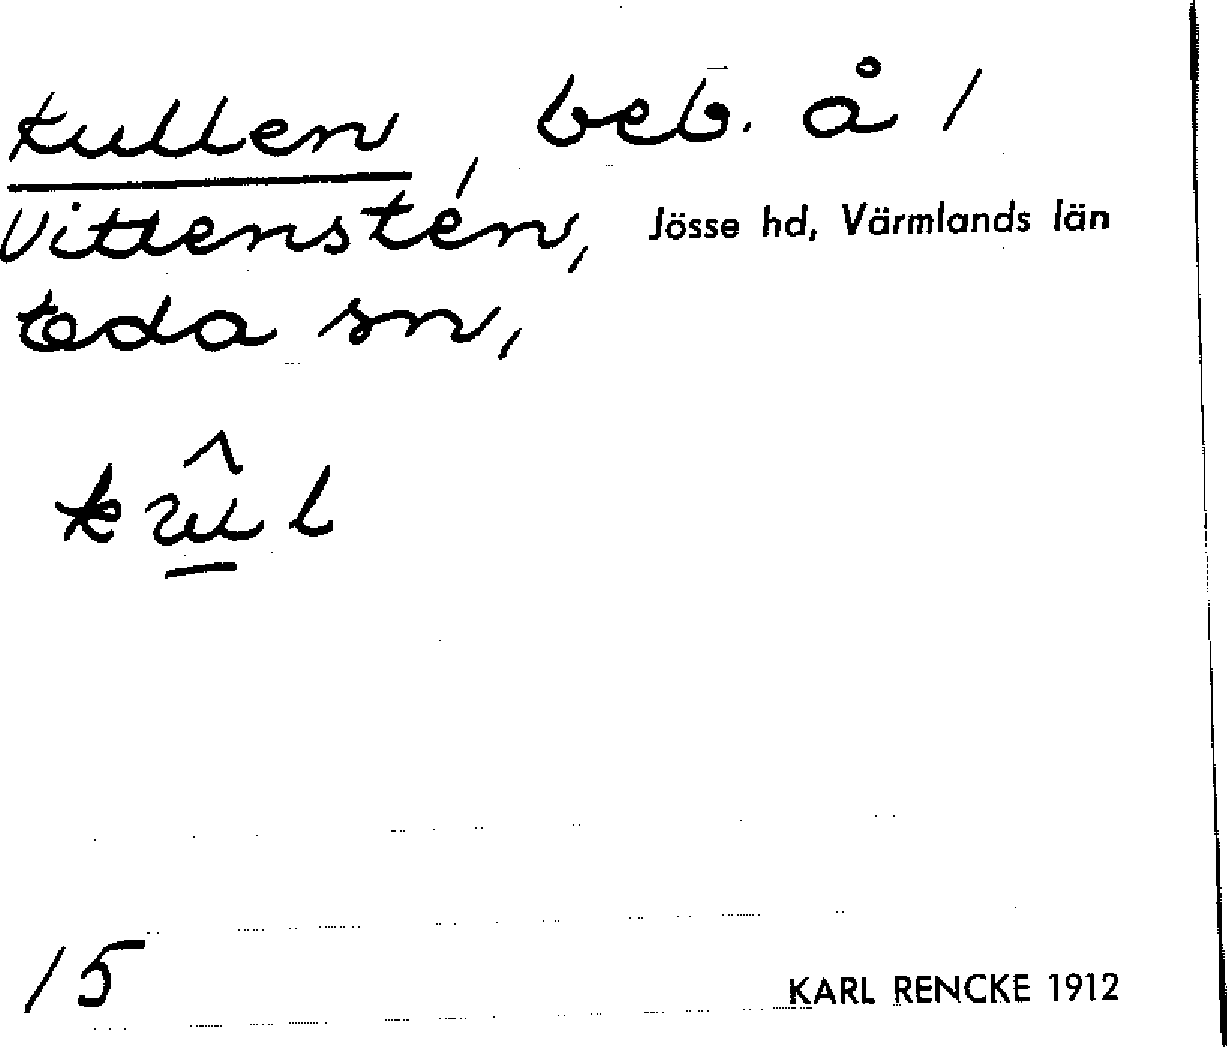 Kullen, beb. å /
Vittenstén, Jösse hd, Värmlands län
Eda sn,
15
KARL RENCKE 1912